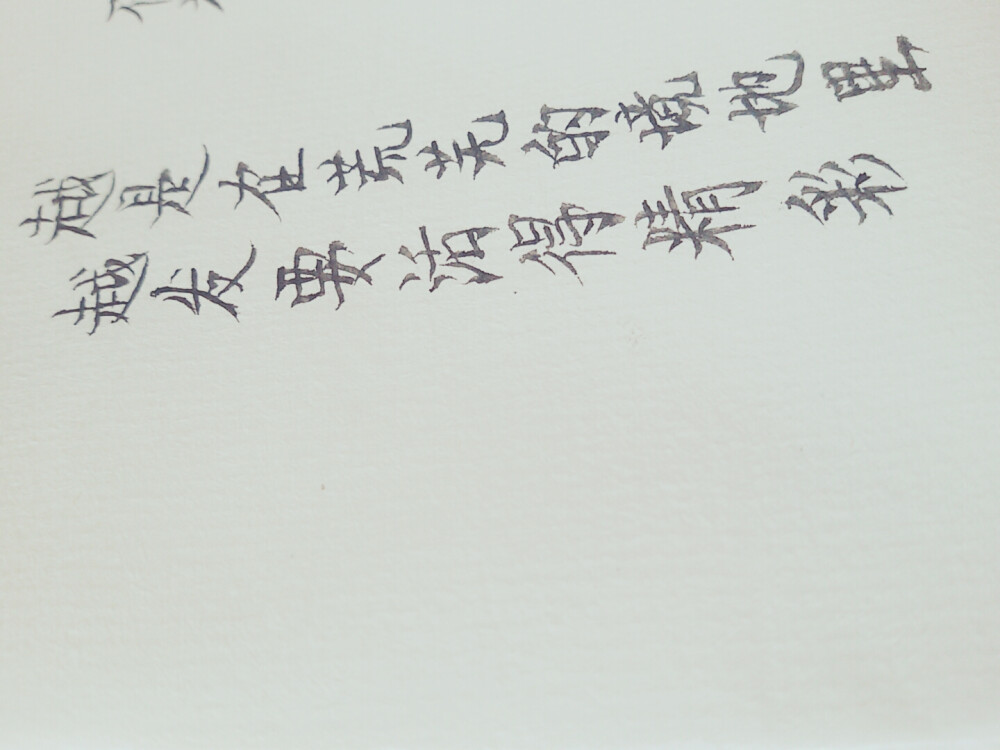 越是在荒芜的境地里
越发要活得精彩